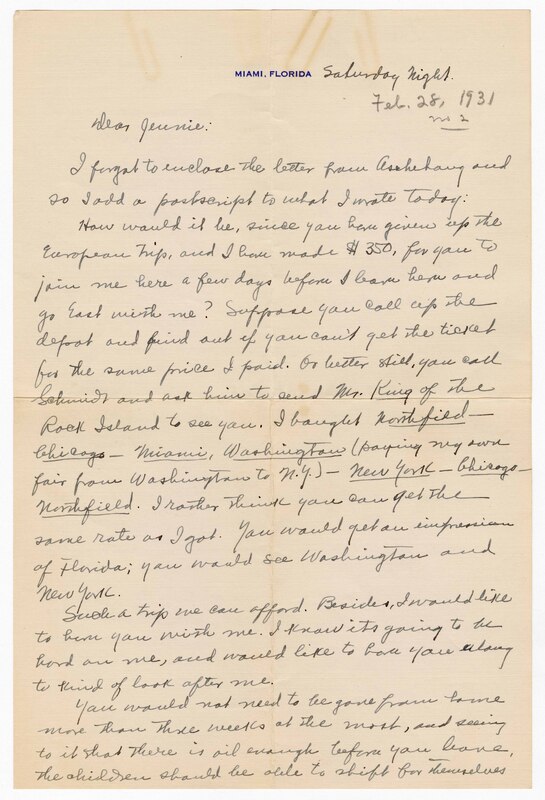 MIAMI, FLORIDA Saturday Night.
Feb. 28, 1931
no 2
Dear Jennie:
I forgot to enclose the letter from Aschehoug and
so I add a postscript to what I wrote today:
How would it be, since you have given up the
European trip, and I have made $350, for you to
join me here a few days before I leave here and
go East with me? Suppose you call up the
depot and find out if you can't get the ticket
for the same price I paid. Or better still, you call
Schmidt and ask him to send Mr. King of the
Rock Island to see you. I bought Northfield—
Chicago — Miami, Washington (paying my own
fair from Washington to N.Y.) — New York — Chicago—
Northfield. I rather think you can get the
same rate as I got. You would get an impression
of Florida; you would see Washington and
New York.
Such a trip we can afford. Besides, I would like
to have you with me. I know it's going to be
hard on me, and would like to have you along
to kind of look after me.
You would not need to be gone from home
more than three weeks at the most, and seeing
to it that there is oil enough before you leave,
the children should be able to shift for themselves